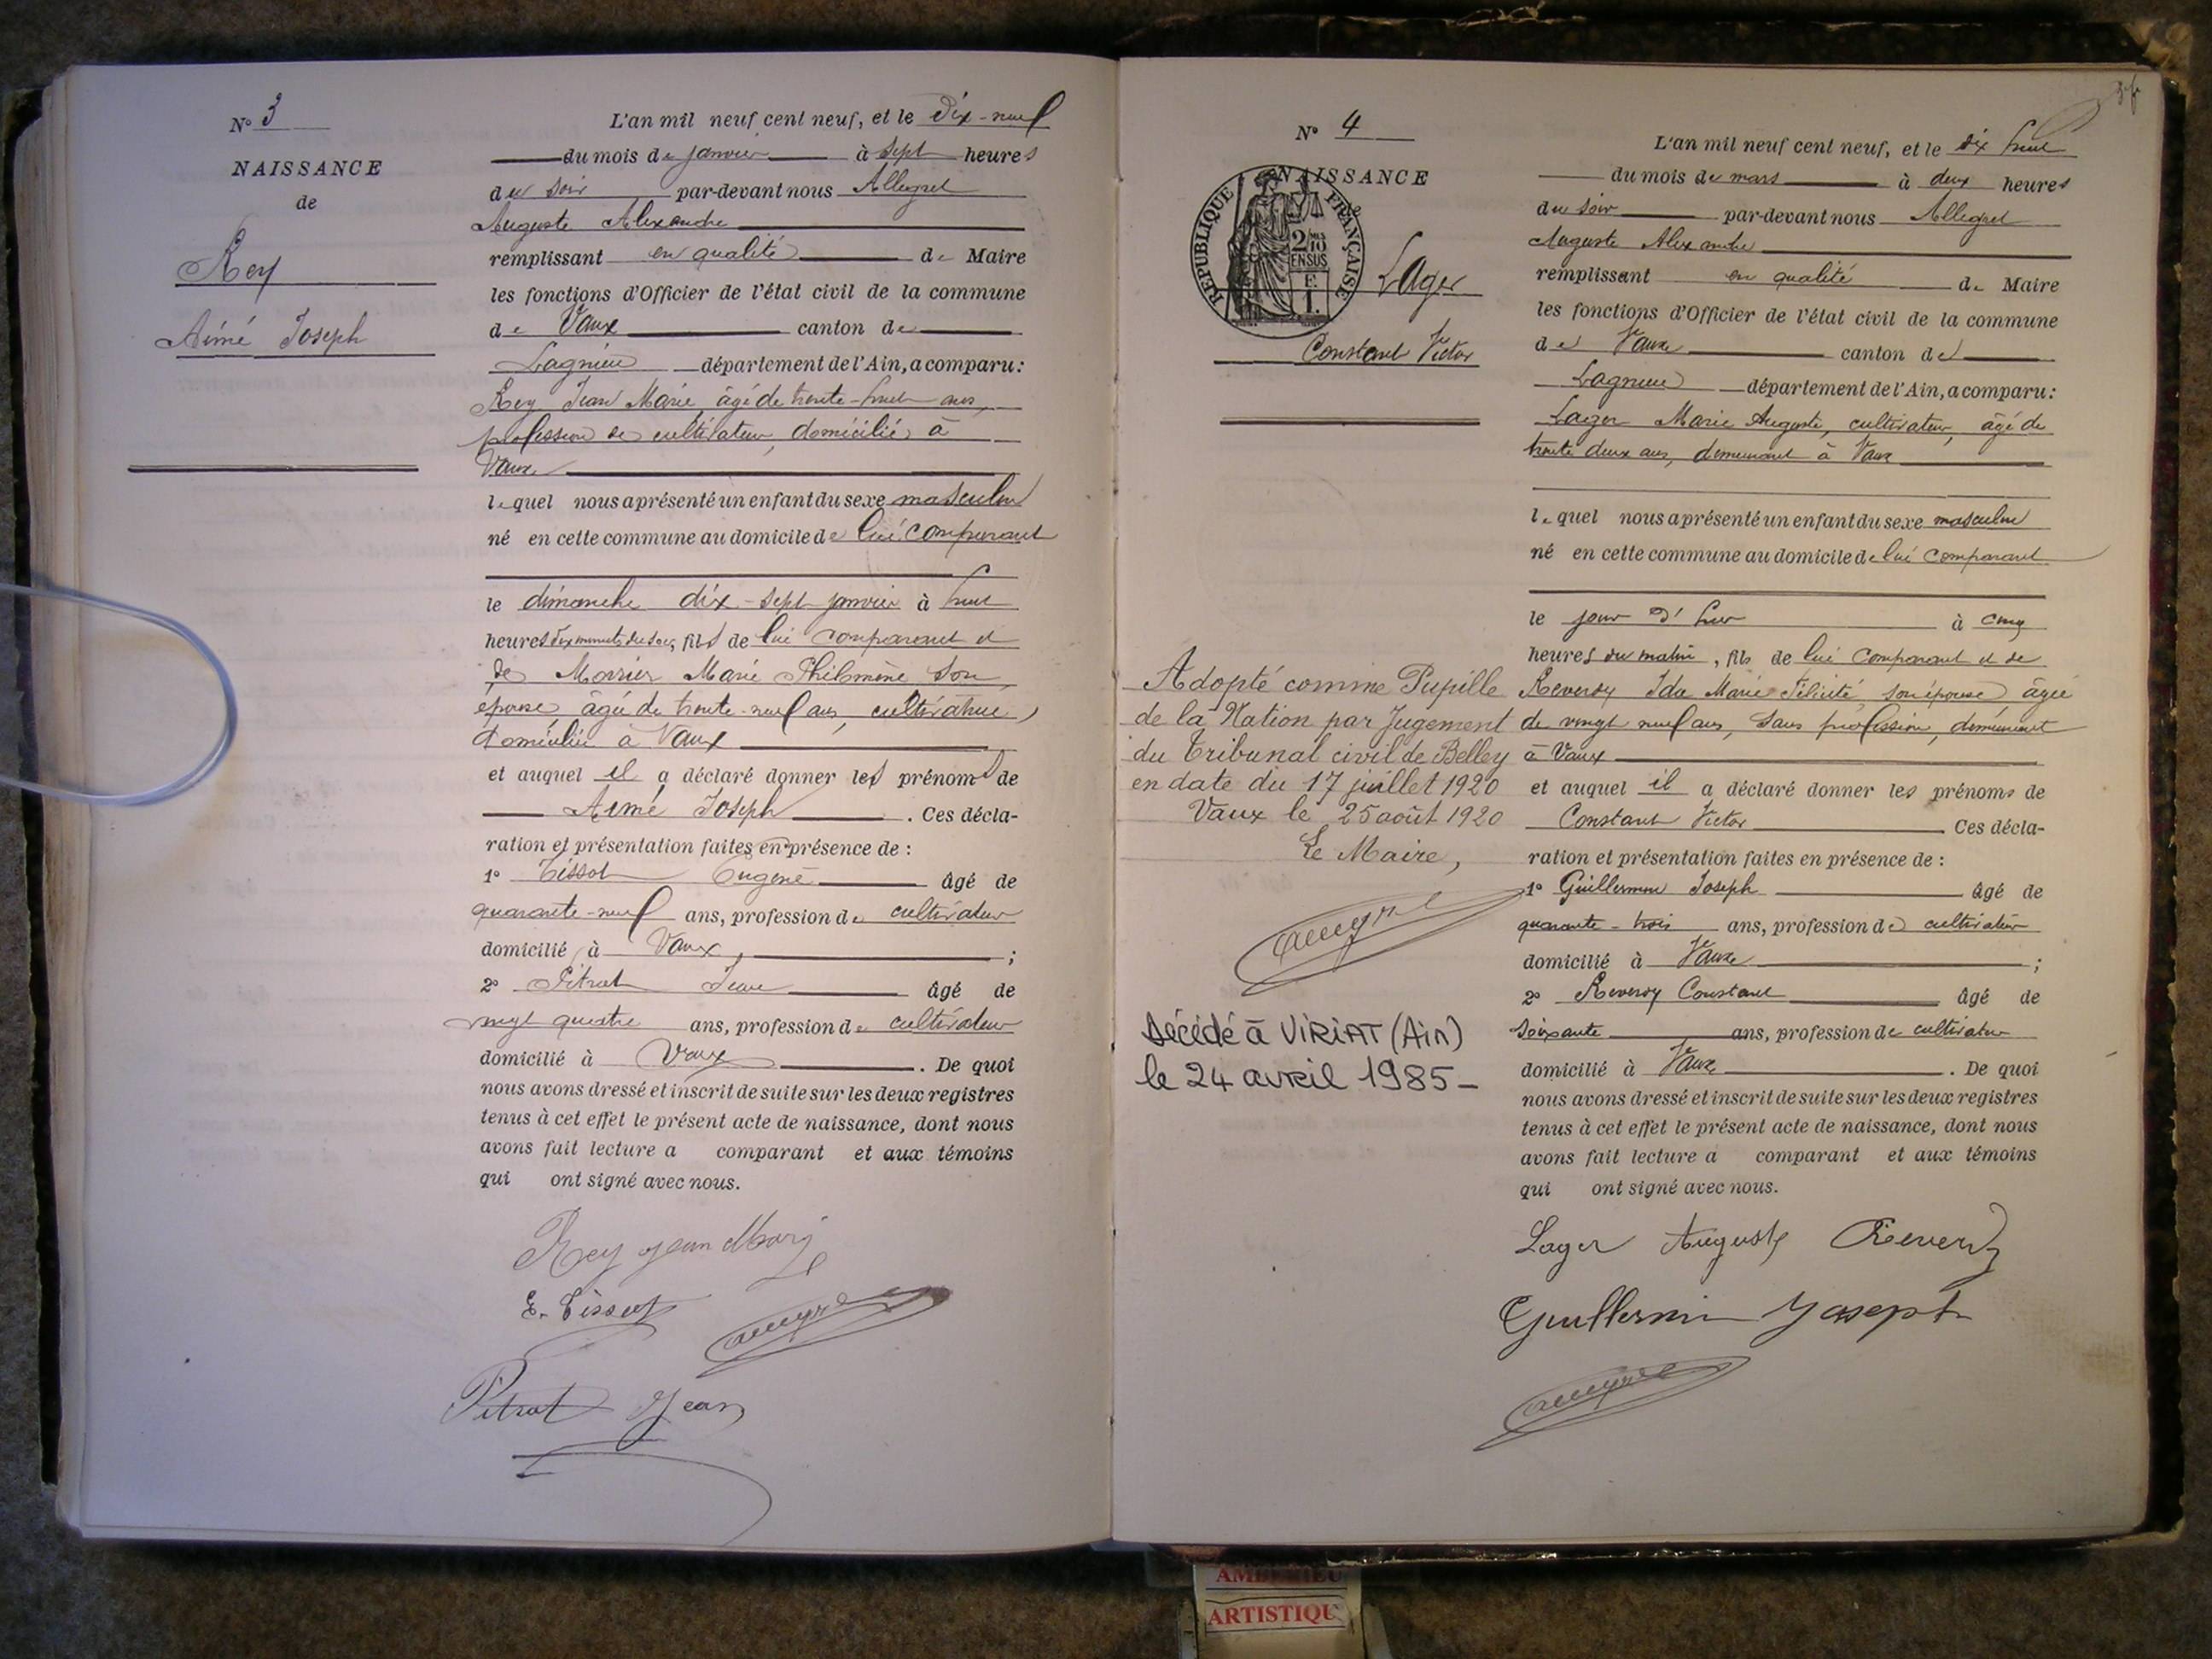 N° 3
NAISSANCE
de
Rey
Aimé Joseph
L'an mil neuf cent neuf, et le dix-neuf
du mois de janvier à sept heures
du soir par-devant nous Allegret
Auguste Alexandre
remplissant en qualité de Maire
les fonctions d'Officier de l'état civil de la commune
de Vaux canton de
Lagnieu département de l'Ain, a comparu:
Rey Jean Marie âgé de trente-huit ans,
profession de cultivateur, domicilié à
Vaux
lequel nous a présenté un enfant du sexe masculin
né en cette commune au domicile de lui comparant
le dimanche dix-sept janvier à huit
heures dix minutes du soir, fils de lui comparant et
de Marie Philomène son
épouse âgée de trente-neuf ans, cultivatrice,
domiciliée à Vaux
et auquel il a déclaré donner les prénoms de
Aimé Joseph . Ces décla-
ration et présentation faites en présence de :
1° Tissot Eugène âgé de
quarante-neuf ans, profession de cultivateur
domicilié à Vaux ;
2° Pitrat Jean âgé de
vingt quatre ans, profession de cultivateur
domicilié à Vaux . De quoi
nous avons dressé et inscrit de suite sur les deux registres
tenus à cet effet le présent acte de naissance, dont nous
avons fait lecture a comparant et aux témoins
qui ont signé avec nous.
Rey Jean Marie
E. Tissot
Pitrat Jean
N° 4
NAISSANCE
de
REPUBLIQUE FRANÇAISE
2/10 EN SUS
F. 1.
Lager
Constant Victor
Adopté comme Pupille
de la Nation par Jugement
du Tribunal civil de Belley
en date du 17 juillet 1920
Vaux le 25 août 1920
Le Maire,
Décédé à VIRIAT (Ain)
le 24 avril 1985-
L'an mil neuf cent neuf, et le dix huit
du mois de mars à deux heures
du soir par-devant nous Allegret
Auguste Alexandre
remplissant en qualité de Maire
les fonctions d'Officier de l'état civil de la commune
de Vaux canton de
Lagnieu département de l'Ain, a comparu:
Lager Marie Auguste, cultivateur, âgé de
trente deux ans, demeurant à Vaux
lequel nous a présenté un enfant du sexe masculin
né en cette commune au domicile de lui comparant
le jour d'hier à cinq
heures du matin, fils de lui comparant et de
Reverdy Ida Marie Félicité son épouse âgée
de vingt neuf ans, sans profession, demeurant
à Vaux
et auquel il a déclaré donner les prénoms de
Constant Victor Ces décla-
ration et présentation faites en présence de :
1° Guillermin Joseph âgé de
quarante-trois ans, profession de cultivateur
domicilié à Vaux ;
2° Reverdy Constant âgé de
soixante ans, profession de cultivateur
domicilié à Vaux . De quoi
nous avons dressé et inscrit de suite sur les deux registres
tenus à cet effet le présent acte de naissance, dont nous
avons fait lecture a comparant et aux témoins
qui ont signé avec nous.
Lager Auguste Reverdy
Guillermin Joseph
AMBERIEU
ARTISTIQU